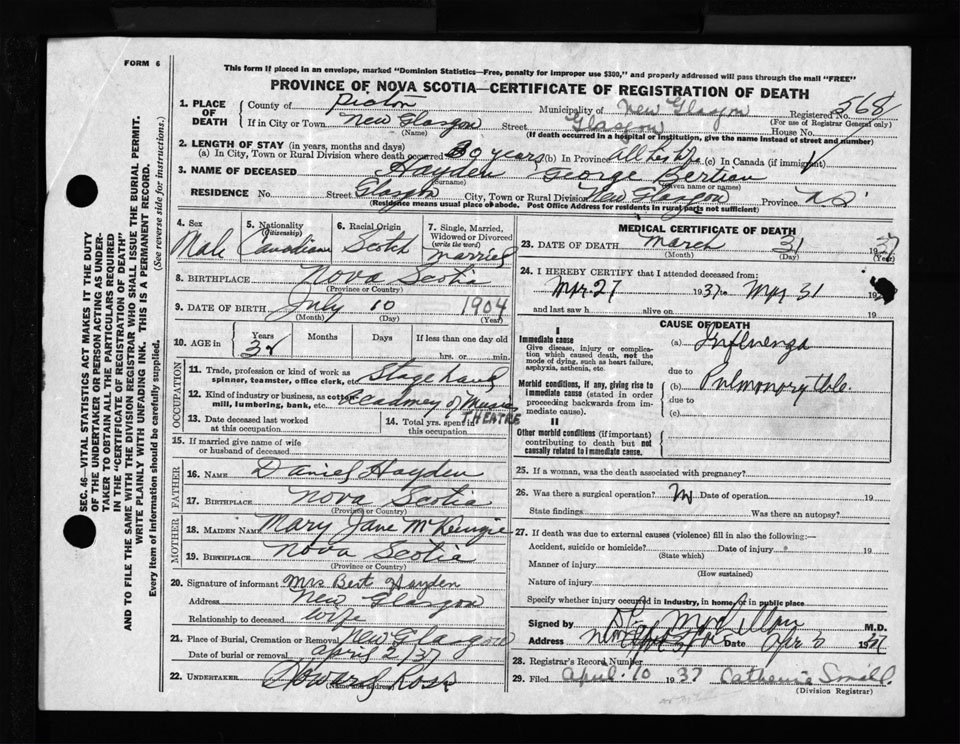 FORM 6
This form if placed in an envelope, marked "Dominion Statistics—Free, penalty for improper use $300," and properly addressed will pass through the mail "FREE"
PROVINCE OF NOVA SCOTIA—CERTIFICATE OF REGISTRATION OF DEATH
SEC. 46—VITAL STATISTICS ACT MAKES IT THE DUTY
OF THE UNDERTAKER OR PERSON ACTING AS UNDER-
TAKER TO OBTAIN ALL THE PARTICULARS REQUIRED
IN THE "CERTIFICATE OF REGISTRATION OF DEATH"
AND TO FILE THE SAME WITH THE DIVISION REGISTRAR WHO SHALL ISSUE THE BURIAL PERMIT.
WRITE PLAINLY WITH UNFADING INK. THIS IS A PERMANENT RECORD.
Every item of information should be carefully supplied. (See reverse side for instructions.)
1. PLACE OF DEATH County of Pictou Municipality of New Glasgow Registered No. 568
If in City or Town New Glasgow Street Glasgow House No. (For use of Registrar General only)
(Name) (If death occurred in a hospital or institution, give the name instead of street and number)
2. LENGTH OF STAY (in years, months and days)
(a) In City, Town or Rural Division where death occurred 30 years (b) In Province all his life (c) In Canada (if immigrant)
3. NAME OF DECEASED Hayden George
(Surname) (Given name or names)
RESIDENCE No. Street Glasgow City, Town or Rural Division New Glasgow Province N.S.
(Residence means usual place of abode. Post Office Address for residents in rural parts not sufficient)
4. Sex Male
5. Nationality (Citizenship) Canadian
6. Racial Origin Scotch
7. Single, Married, Widowed or Divorced (write the word) married
8. BIRTHPLACE Nova Scotia
(Province or Country)
9. DATE OF BIRTH July 10 1904
(Month) (Day) (Year)
10. AGE in Years 32 Months Days If less than one day
hrs. or min.
OCCUPATION
11. Trade, profession or kind of work as spinner, teamster, office clerk, etc. Stage hand
12. Kind of industry or business, as cotton mill, lumbering, bank, etc. Academy of Music
THEATRE
13. Date deceased last worked at this occupation 14. Total yrs. spent in this occupation
15. If married give name of wife or husband of deceased
FATHER
16. NAME Daniel Hayden
17. BIRTHPLACE Nova Scotia
(Province or Country)
MOTHER
18. MAIDEN NAME Mary Jane McKenzie
19. BIRTHPLACE Nova Scotia
(Province or Country)
20. Signature of informant Mrs Bert Hayden
Address New Glasgow
Relationship to deceased wife
21. Place of Burial, Cremation or Removal New Glasgow
Date of burial or removal April 2/37
22. UNDERTAKER Howard Ross
(Name and address)
MEDICAL CERTIFICATE OF DEATH
23. DATE OF DEATH March 31 1937
(Month) (Day) (Year)
24. I HEREBY CERTIFY that I attended deceased from:
Mar 27 1937 to Mar 31 19
and last saw h alive on 19
CAUSE OF DEATH
I
Immediate cause
Give disease, injury or complication which caused death, not the mode of dying, such as heart failure, asphyxia, asthenia, etc.
(a) Influenza
due to
Morbid conditions, if any, giving rise to immediate cause (stated in order proceeding backwards from immediate cause).
(b) Pulmonary tbc.
due to
(c)
II
Other morbid conditions (if important) contributing to death but not causally related to immediate cause.
25. If a woman, was the death associated with pregnancy?
26. Was there a surgical operation? No Date of operation 19
State findings Was there an autopsy?
27. If death was due to external causes (violence) fill in also the following:
Accident, suicide or homicide? Date of injury 19
(State which)
Manner of injury
(How sustained)
Nature of injury
Specify whether injury occurred in Industry, in home, or in public place
Signed by M.D.
Address Date Apr 2 1937
28. Registrar's Record Number
29. Filed April 10 1937 Catherine Small
(Division Registrar)